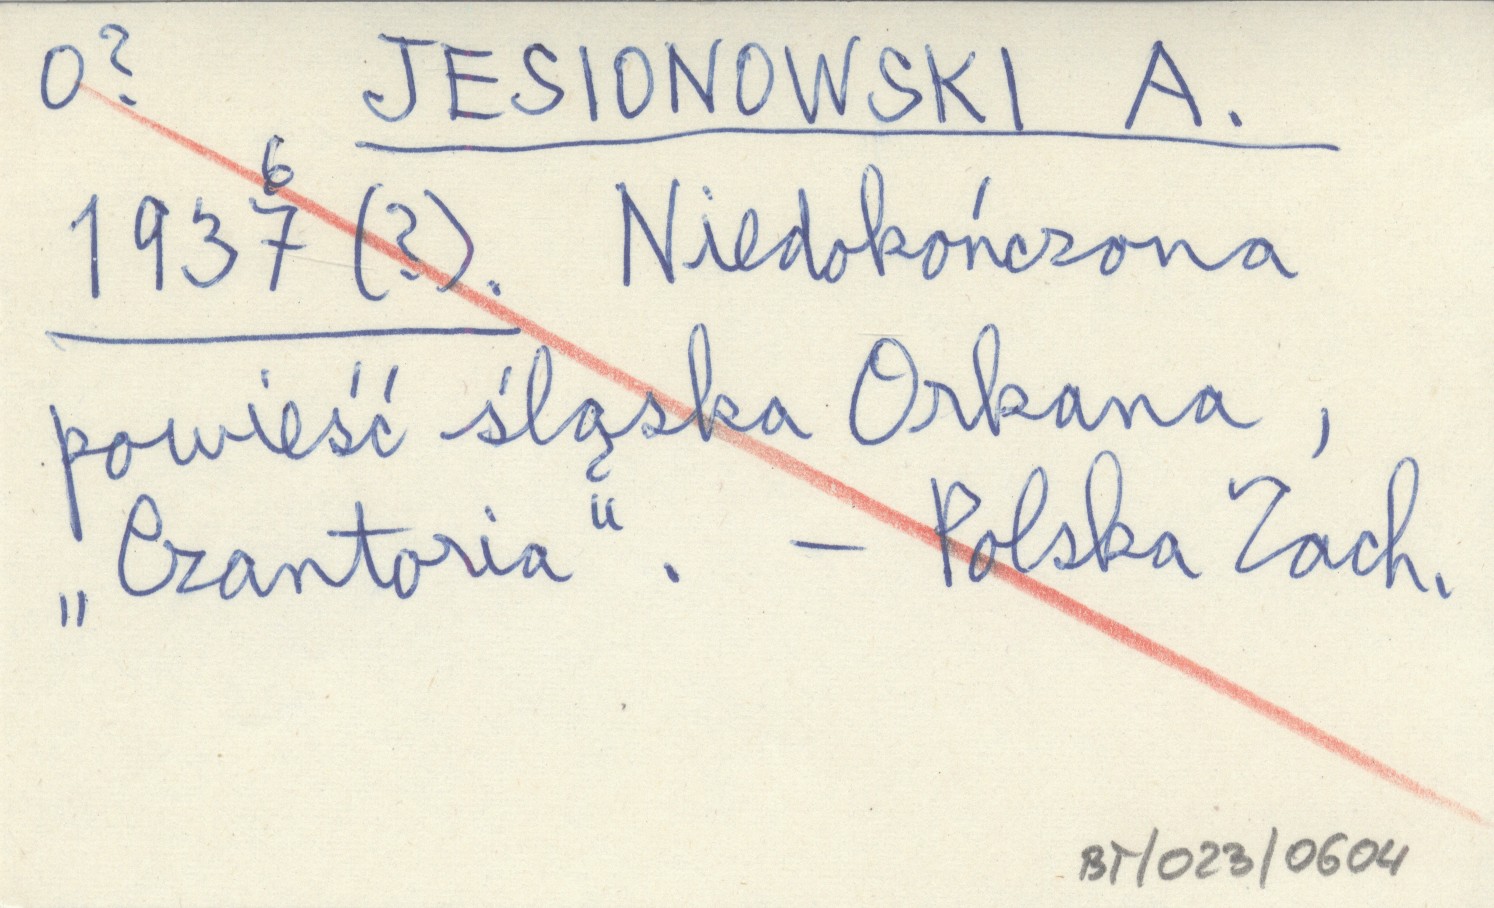 O? JESIONOWSKI A.
6
1937 (?). Niedokończona
powieść śląska Orkana,
„Czantoria". — Polska Zach.
BT/023/0604